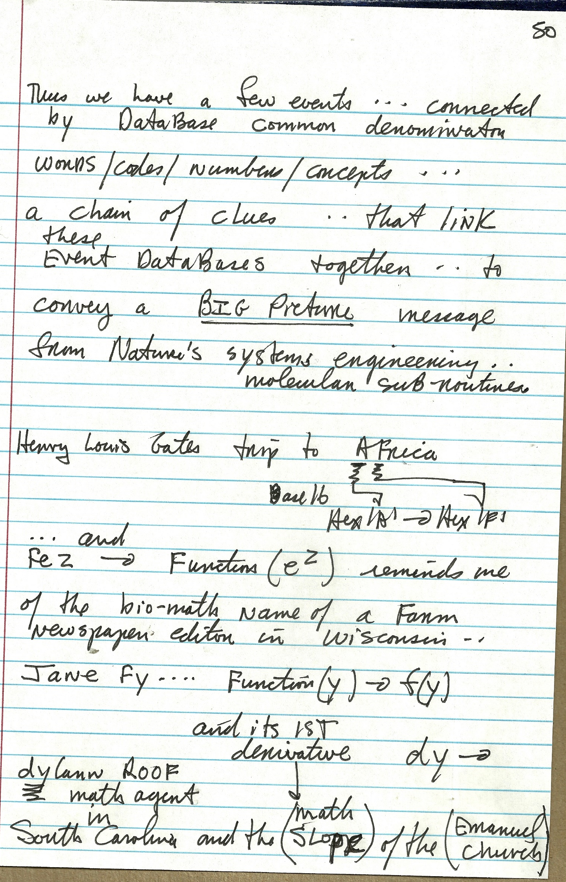 50
Thus we have a few events ... connected
by DataBase common denominator
words/codes/numbers/concepts ...
a chain of clues .. that link
these
Event DataBases together .. to
convey a BIG Picture message
from Nature's systems engineering ..
molecular sub-routines
Henry Louis Gates trip to AFrica
Base 16
Hex 'A' → Hex 'F'
... and
Fez → Function (e^z) reminds me
of the bio-math name of a Farm
newspaper editor in Wisconsin ..
Jane Fy .... Function (y) → f(y)
and its 1ST
derivative dy →
dylann ROOF
math agent
in
South Carolina and the (math Slope) of the (Emanuel Church)